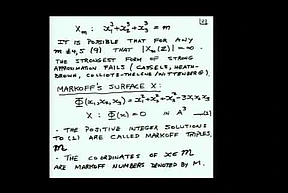 X_m : x_1^3 + x_2^3 + x_3^3 = m
IT IS POSSIBLE THAT FOR ANY
m ≢ 4,5 (9) THAT |X_m(Z)| = ∞.
THE STRONGEST FORM OF STRONG
APPROXIMATION FAILS (CASSELS, HEATH-
BROWN, COLLIOT-THELENE/WITTENBERG).
MARKOFF'S SURFACE X:
Φ(x_1,x_2,x_3) = x_1^2 + x_2^2 + x_3^2 - 3x_1x_2x_3
X : Φ(x) = 0 IN A^3
- THE POSITIVE INTEGER SOLUTIONS
TO (2) ARE CALLED MARKOFF TRIPLES,
M
- THE COORDINATES OF x ∈ M
ARE MARKOFF NUMBERS DENOTED BY M.